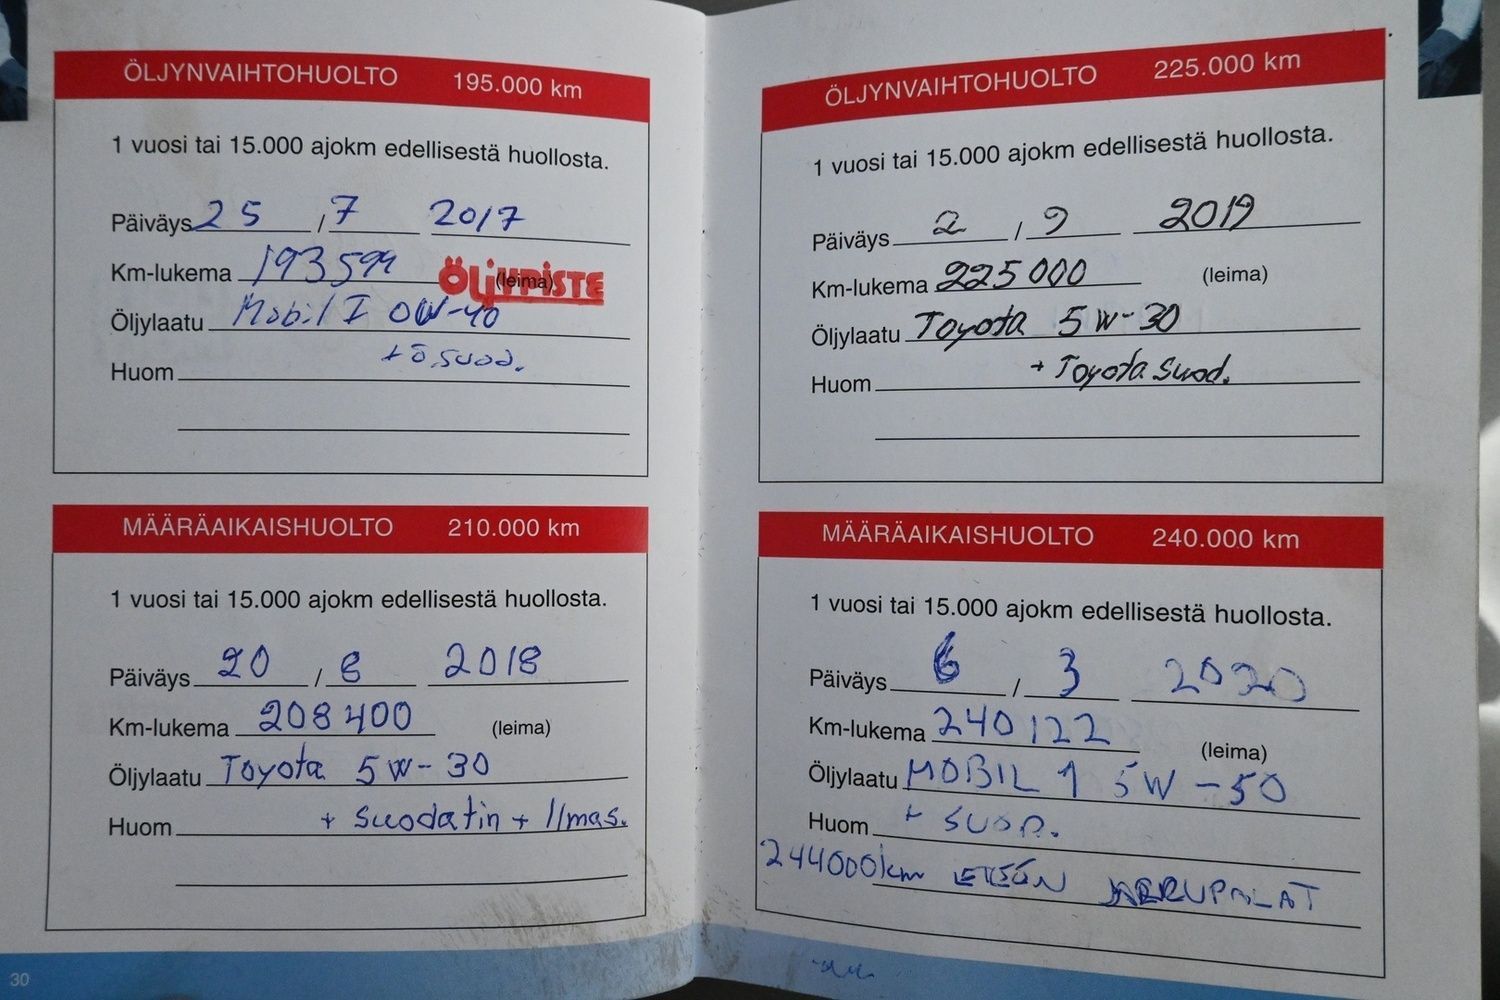 ÖLJYNVAIHTOHUOLTO 195.000 km
1 vuosi tai 15.000 ajokm edellisestä huollosta.
Päiväys 25 / 7 2017
Km-lukema 193599 (leima) ÖLJYPISTE
Öljylaatu Mobil I 0W-40
+ ö.suod.
Huom
MÄÄRÄAIKAISHUOLTO 210.000 km
1 vuosi tai 15.000 ajokm edellisestä huollosta.
Päiväys 20 / 8 2018
Km-lukema 208400 (leima)
Öljylaatu Toyota 5W-30
Huom + Suodatin + Ilmas.
30
ÖLJYNVAIHTOHUOLTO 225.000 km
1 vuosi tai 15.000 ajokm edellisestä huollosta.
Päiväys 2 / 9 2019
Km-lukema 225000 (leima)
Öljylaatu Toyota 5W-30
Huom + Toyota Suod.
MÄÄRÄAIKAISHUOLTO 240.000 km
1 vuosi tai 15.000 ajokm edellisestä huollosta.
Päiväys 6 / 3 2020
Km-lukema 240122 (leima)
Öljylaatu MOBIL 1 5W-50
Huom + SUOD.
244000km ETEEN JARRUPALAT